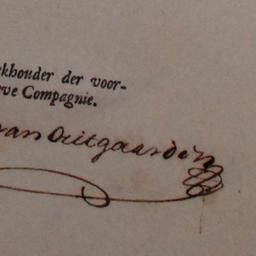 ekhouder der voor-
ve Compagnie.
van Outgaarden